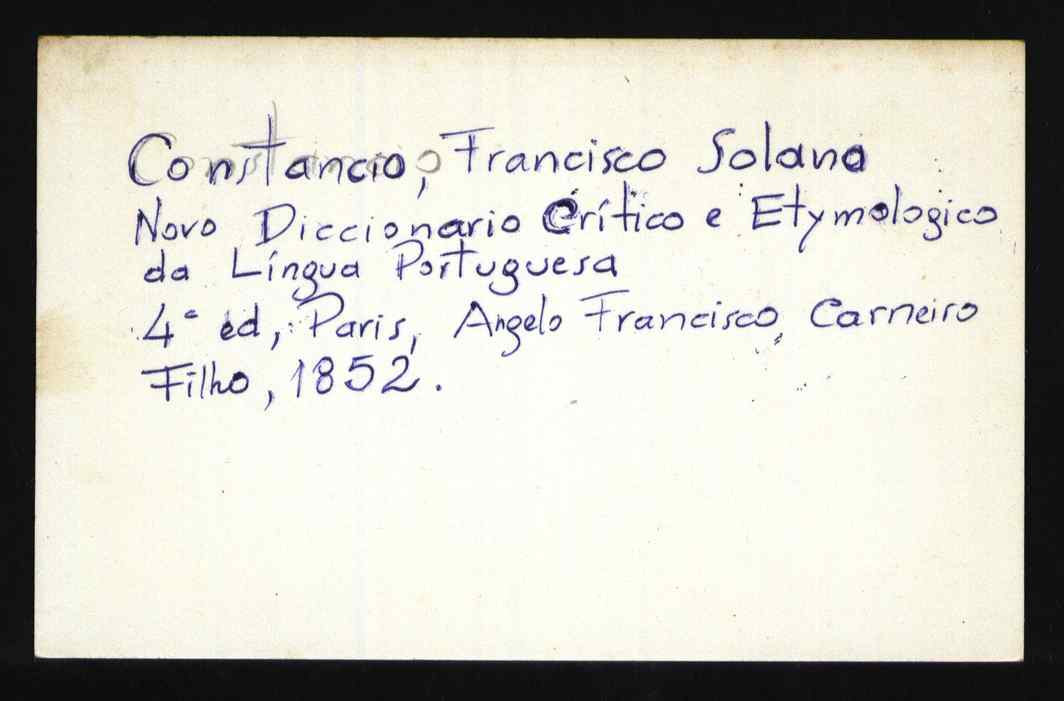 Constancio, Francisco Solano
Novo Diccionario Crítico e Etymologico
da Língua Portuguesa
4ª ed, Paris, Angelo Francisco, Carneiro
Filho, 1852.